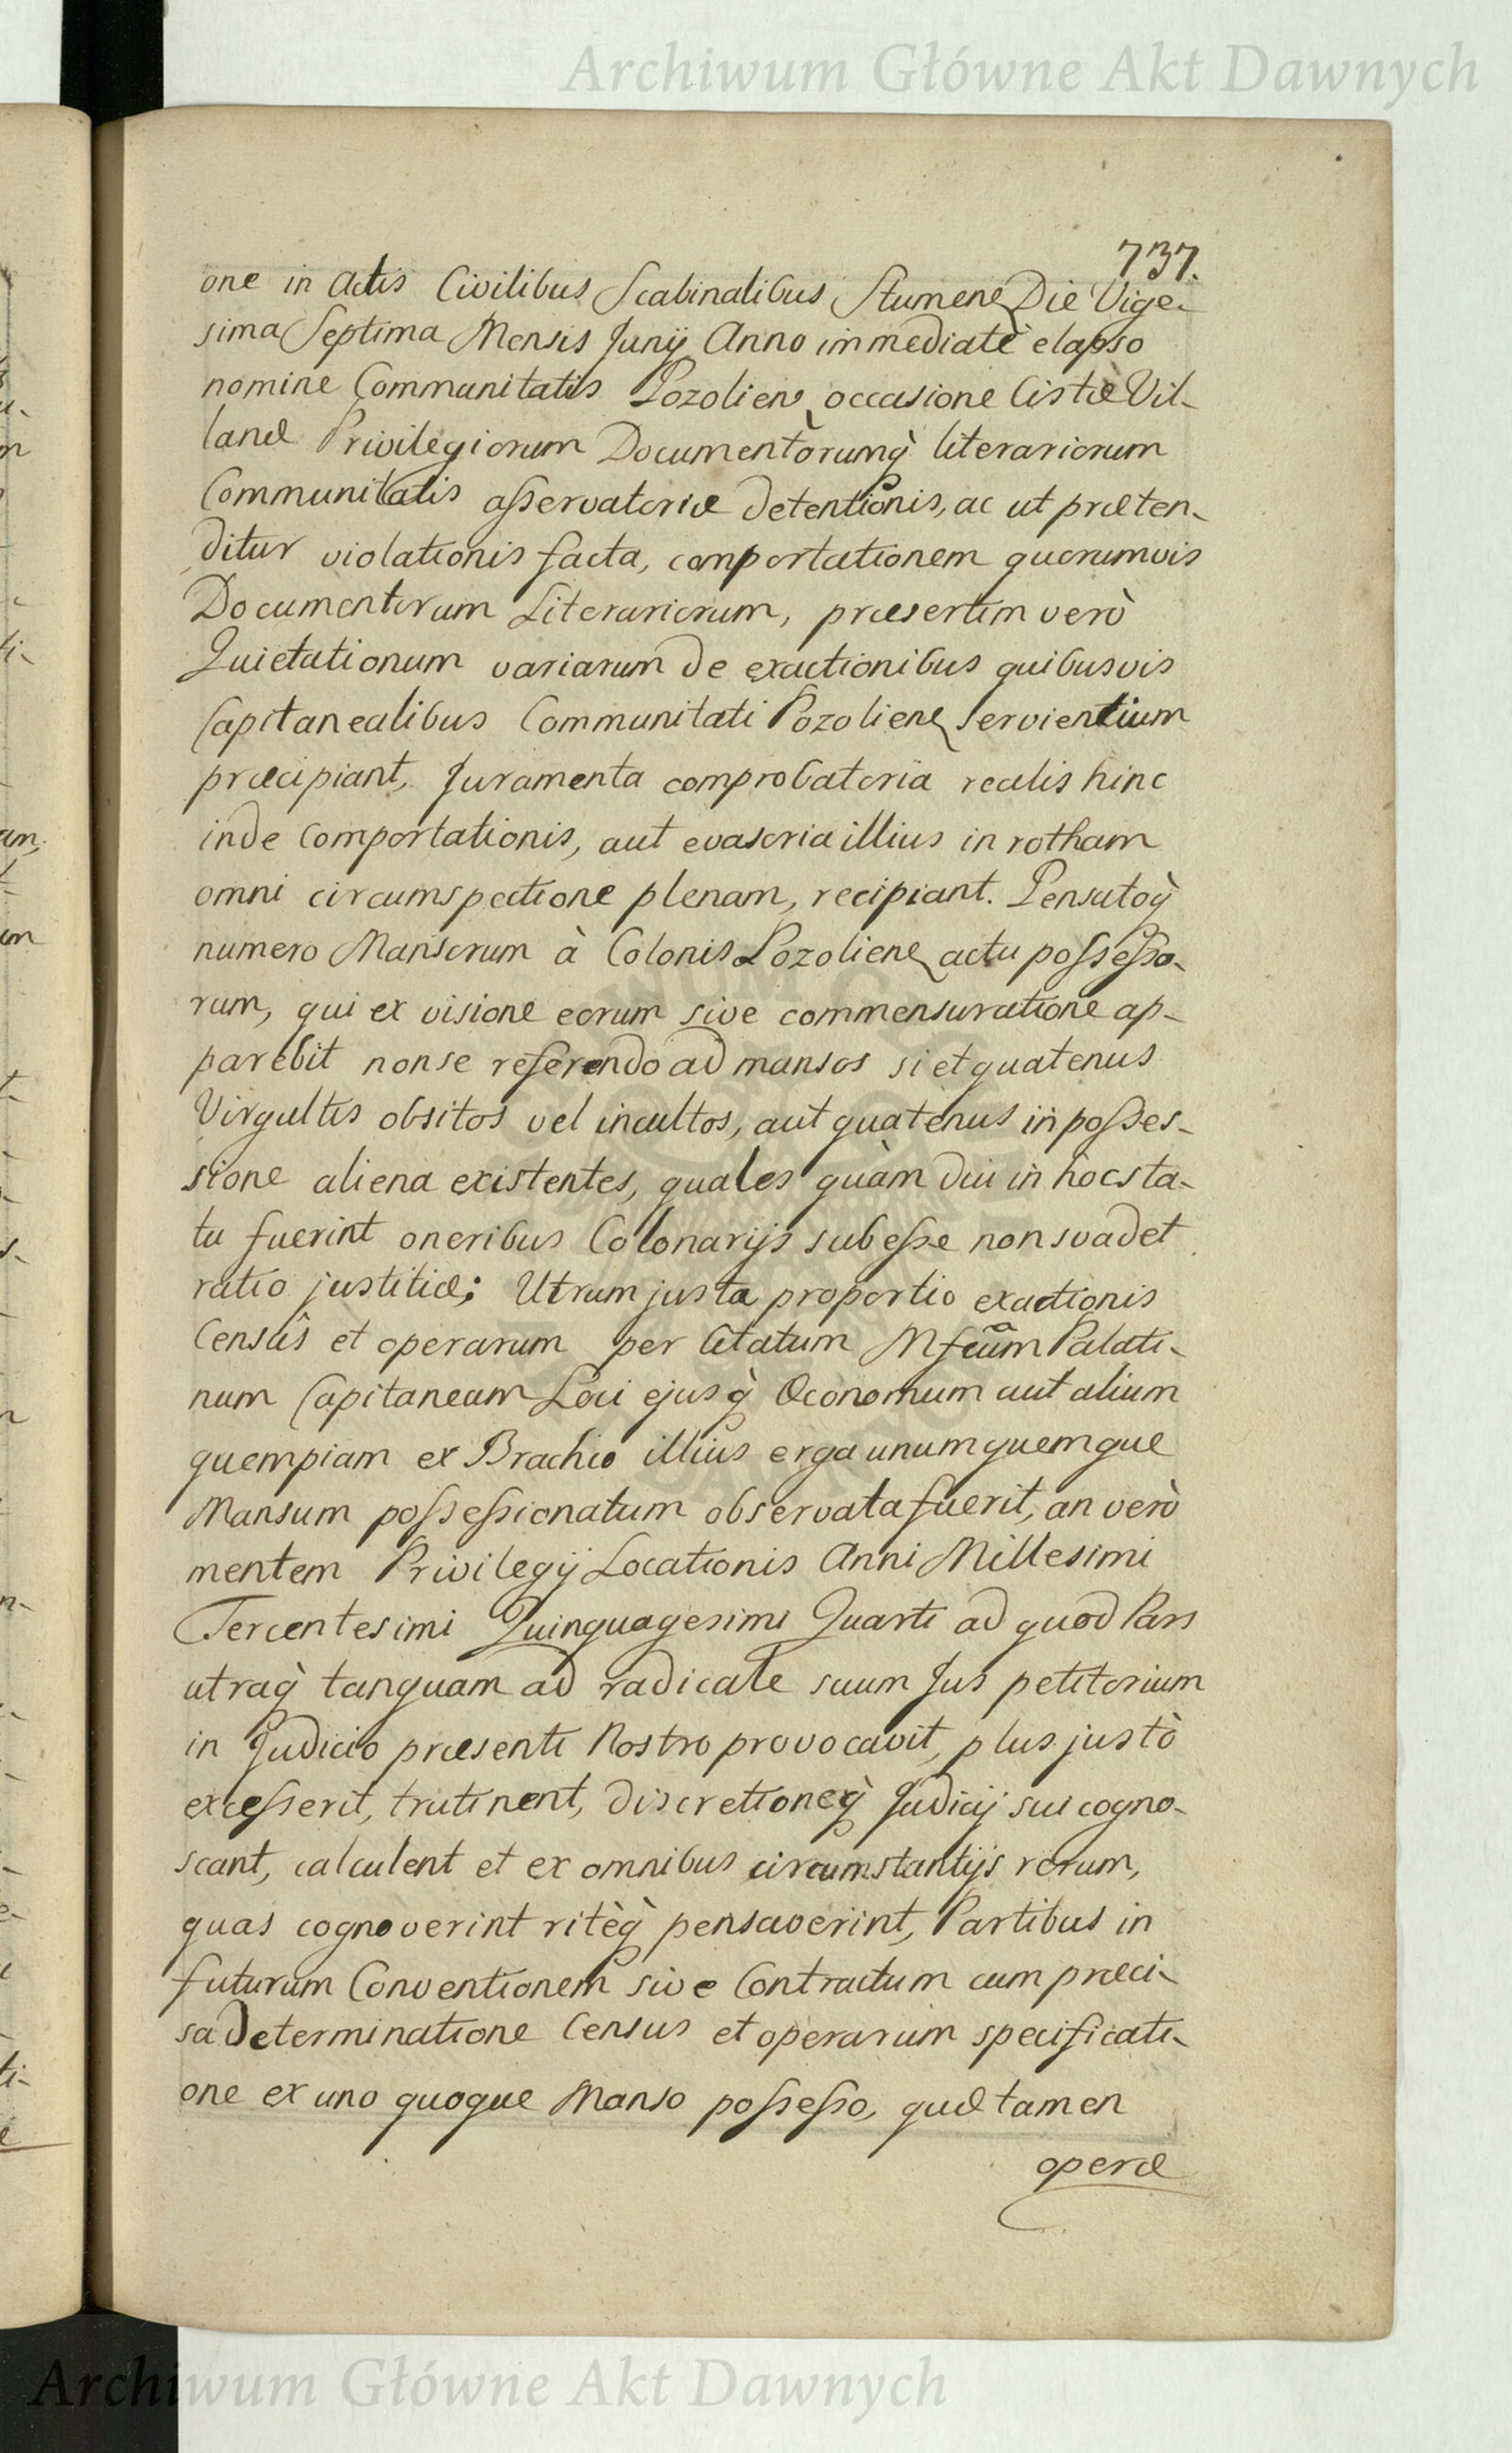 Archiwum Główne Akt Dawnych
737.
one in Actis Civilibus Scabinalibus Stumen Die Vige-
sima Septima Mensis Junij Anno immediatè elapso
nomine Communitatis Pozolien occasione Cistæ Vil-
lanæ Privilegiorum Documentòrumq̀ literariorum
Communitatis asservatoriæ detentionis, ac ut præten-
ditur violationis facta, comportationem quorumvis
Documentorum Literariorum, præsertim verò
Quietationum variarum de exactionibus quibusvis
Capitanealibus Communitati Pozolien servientium
præcipiant, Juramenta comprobatoria realis hinc
inde comportationis, aut evasoria illius in rotham
omni circumspectione plenam, recipiant. Pensatoq̀
numero Mansorum à Colonis Pozolien actu possesso-
rum, qui ex visione eorum sive commensuratione ap-
parebit non se referendo ad mansos si et quatenus
Virgultis obsitos vel incultos, aut quatenus in posses-
sione aliena existentes, quales quàm diu in hoc sta-
tu fuerint oneribus Colonarijs subesse non svadet
ratio justitiæ; Utrum justa proportio exactionis
Censûs et operarum per Citatum Mfcum Palati-
num Capitaneum Loci ejusq̀ Œconomum aut alium
quempiam ex Brachio illius erga unumquemque
Mansum possessionatum observata fuerit, an verò
mentem Privilegij Locationis Anni Millesimi
Tercentesimi Quinquagesimi Quarti ad quod Pars
utraq̀ tanquam ad radicale suum Jus petitorium
in Judicio præsenti Nostro provocavit, plus justò
excesserit, trutinent, discretioneq̀ Judicij sui cogno-
scant, calculent et ex omnibus circumstantijs rerum,
quas cognoverint ritèq̀ pensaverint, Partibus in
futurum Conventionem sive Contractum cum præci-
sa determinatione Census et operarum specificati-
one ex uno quoque Manso possesso, quæ tamen
operæ
Archiwum Główne Akt Dawnych